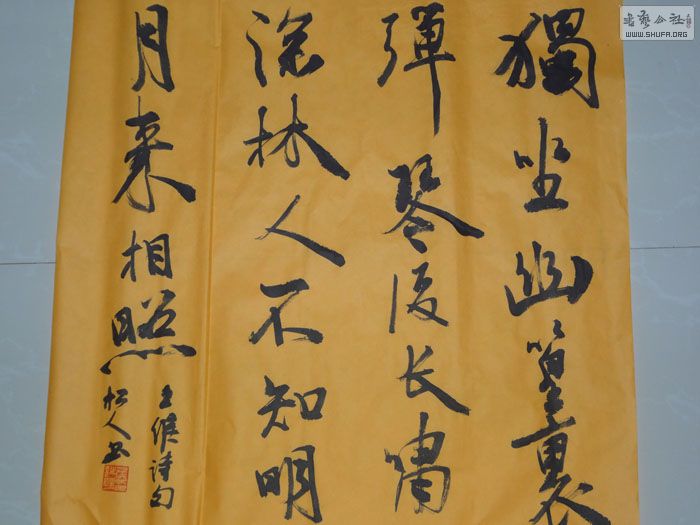 獨坐幽篁裏
彈琴復长嘯
深林人不知明
月来相照
王維诗句
松人书
书艺公社
WWW.SHUFA.ORG